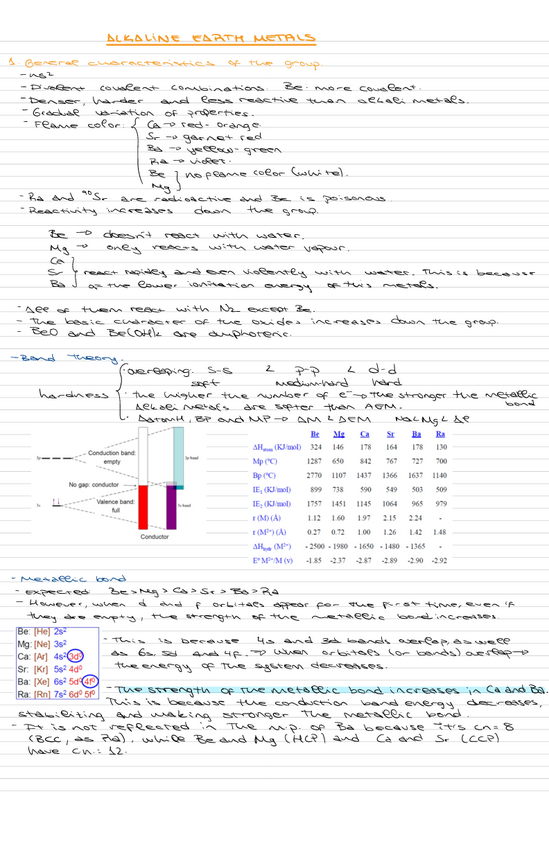 ALKALINE EARTH METALS
1. General characteristics of the group.
- ns²
- Divalent covalent combinations. Be: more covalent.
- Denser, harder and less reactive than alkali metals.
- Gradual variation of properties.
- Flame color: { Ca → red-orange
Sr → garnet red
Ba → yellow-green
Ra → violet.
Be ] no flame color (white).
Mg
- Ra and ⁹⁰Sr are radioactive and Be is poisonous.
- Reactivity increases down the group.
Be → doesn't react with water.
Mg → only reacts with water vapour.
Ca
Sr } react rapidly and even violently with water. This is because
Ba of the lower ionization energy of this metals.
- All of them react with N₂ except Be.
- The basic character of the oxides increases down the group.
- BeO and Be(OH)₂ are amphoteric.
- Band theory.
· overlapping: s-s < p-p < d-d
soft medium-hard hard
hardness { · the higher the number of e⁻ → the stronger the metallic bond
Alkali metals are softer than AEM.
· ΔatomH, BP and MP → AM < AEM Na<Mg<Al
Be Mg Ca Sr Ba Ra
ΔHatom (KJ/mol) 324 146 178 164 178 130
Mp (ºC) 1287 650 842 767 727 700
Bp (ºC) 2770 1107 1437 1366 1637 1140
IE₁ (KJ/mol) 899 738 590 549 503 509
IE₂ (KJ/mol) 1757 1451 1145 1064 965 979
r (M) (Å) 1.12 1.60 1.97 2.15 2.24 -
r (M²⁺) (Å) 0.27 0.72 1.00 1.26 1.42 1.48
ΔHhydr (M²⁺) - 2500 - 1980 - 1650 - 1480 - 1365 -
Eº M²⁺/M (v) -1.85 -2.37 -2.87 -2.89 -2.90 -2.92
Conduction band: empty
No gap: conductor
Valence band: full
Conductor
- Metallic bond
- expected Be>Mg>Ca>Sr>Ba>Ra
- However, when d and f orbitals appear for the first time, even if
they are empty, the strength of the metallic bond increases.
Be: [He] 2s²
Mg: [Ne] 3s²
Ca: [Ar] 4s² 3d⁰
Sr: [Kr] 5s² 4d⁰
Ba: [Xe] 6s² 5d⁰ 4f⁰
Ra: [Rn] 7s² 6d⁰ 5f⁰
- This is because 4s and 3d bands overlap, as well
as 6s, 5d and 4f. → When orbitals (or bands) overlap →
the energy of the system decreases.
- The strength of the metallic bond increases in Ca and Ba.
This is because the conduction band energy decreases,
stabiliting and making stronger the metallic bond.
- It is not reflected in the m.p. of Ba because it's cn = 8
(BCC, as Ra), while Be and Mg (HCP) and Ca and Sr (CCP)
have cn.: 12.